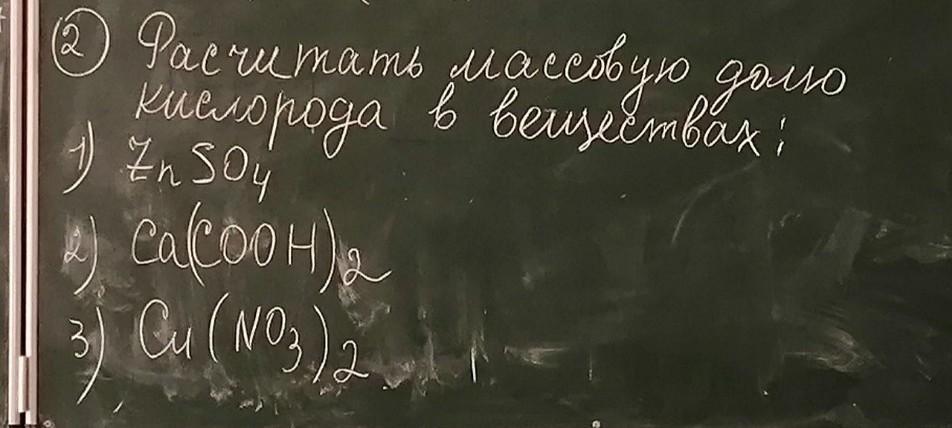 ② Расчитать массовую долю
кислорода в веществах:
1) ZnSO₄
2) Ca(COOH)₂
3) Cu(NO₃)₂